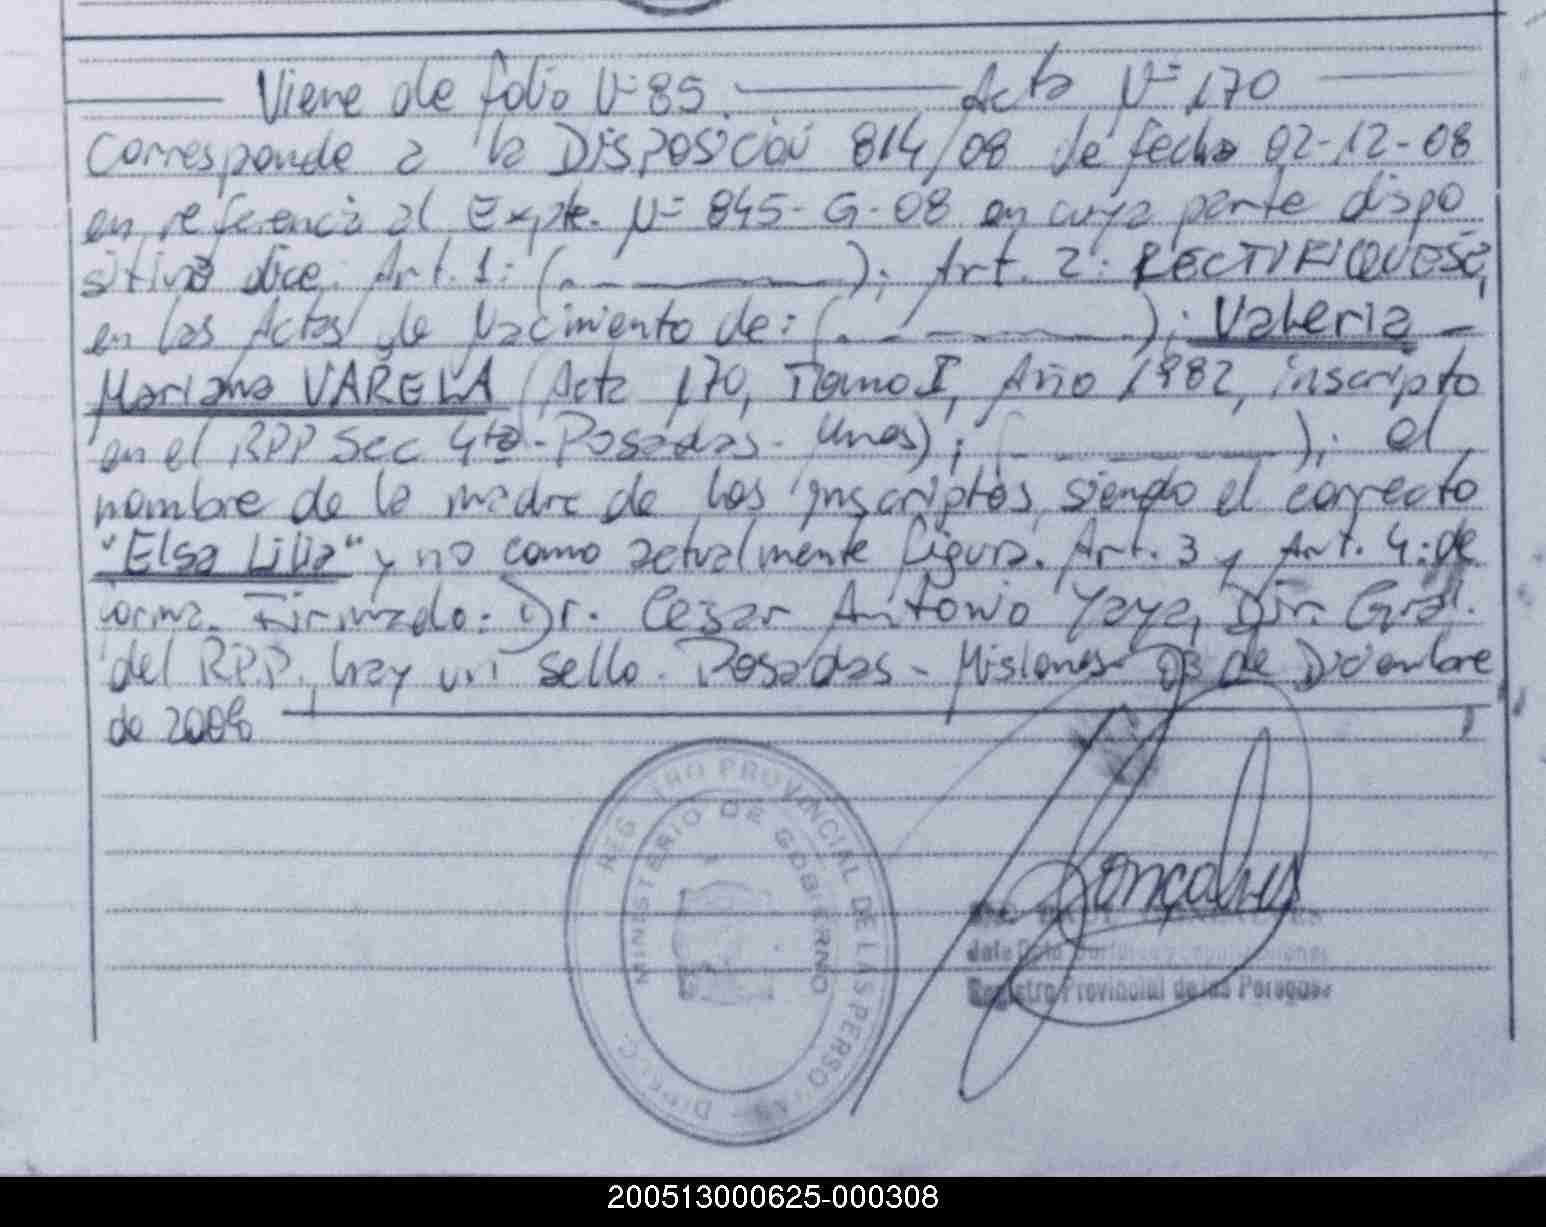 Viene de folio Nº 85 Acta Nº 170
Corresponde a la DISPOSICIÓN 814/08 de fecha 02-12-08
en referencia al Expte. Nº 845-G-08 en cuya parte dispo
sitiva dice. Art. 1: ( ); Art. 2: RECTIFIQUESE,
en las Actas de Nacimiento de: ( ); Valeria
Mariana VARELA (Acta 170, Tomo I, Año 1982, inscripto
en el RPP Sec 4ta - Posadas - Mnes); ( ); el
nombre de la madre de los inscriptos, siendo el correcto
"Elsa Lilia" y no como actualmente figura. Art. 3 y Art. 4: de
forma. Firmado: Dr. Cesar Antonio Yaya, Dir. Gral.
del R.P.P., hay un sello. Posadas - Misiones 03 de Diciembre
de 2008
REGISTRO PROVINCIAL DE LAS PERSONAS
MINISTERIO DE GOBIERNO
Registro Provincial de las Personas
200513000625-000308